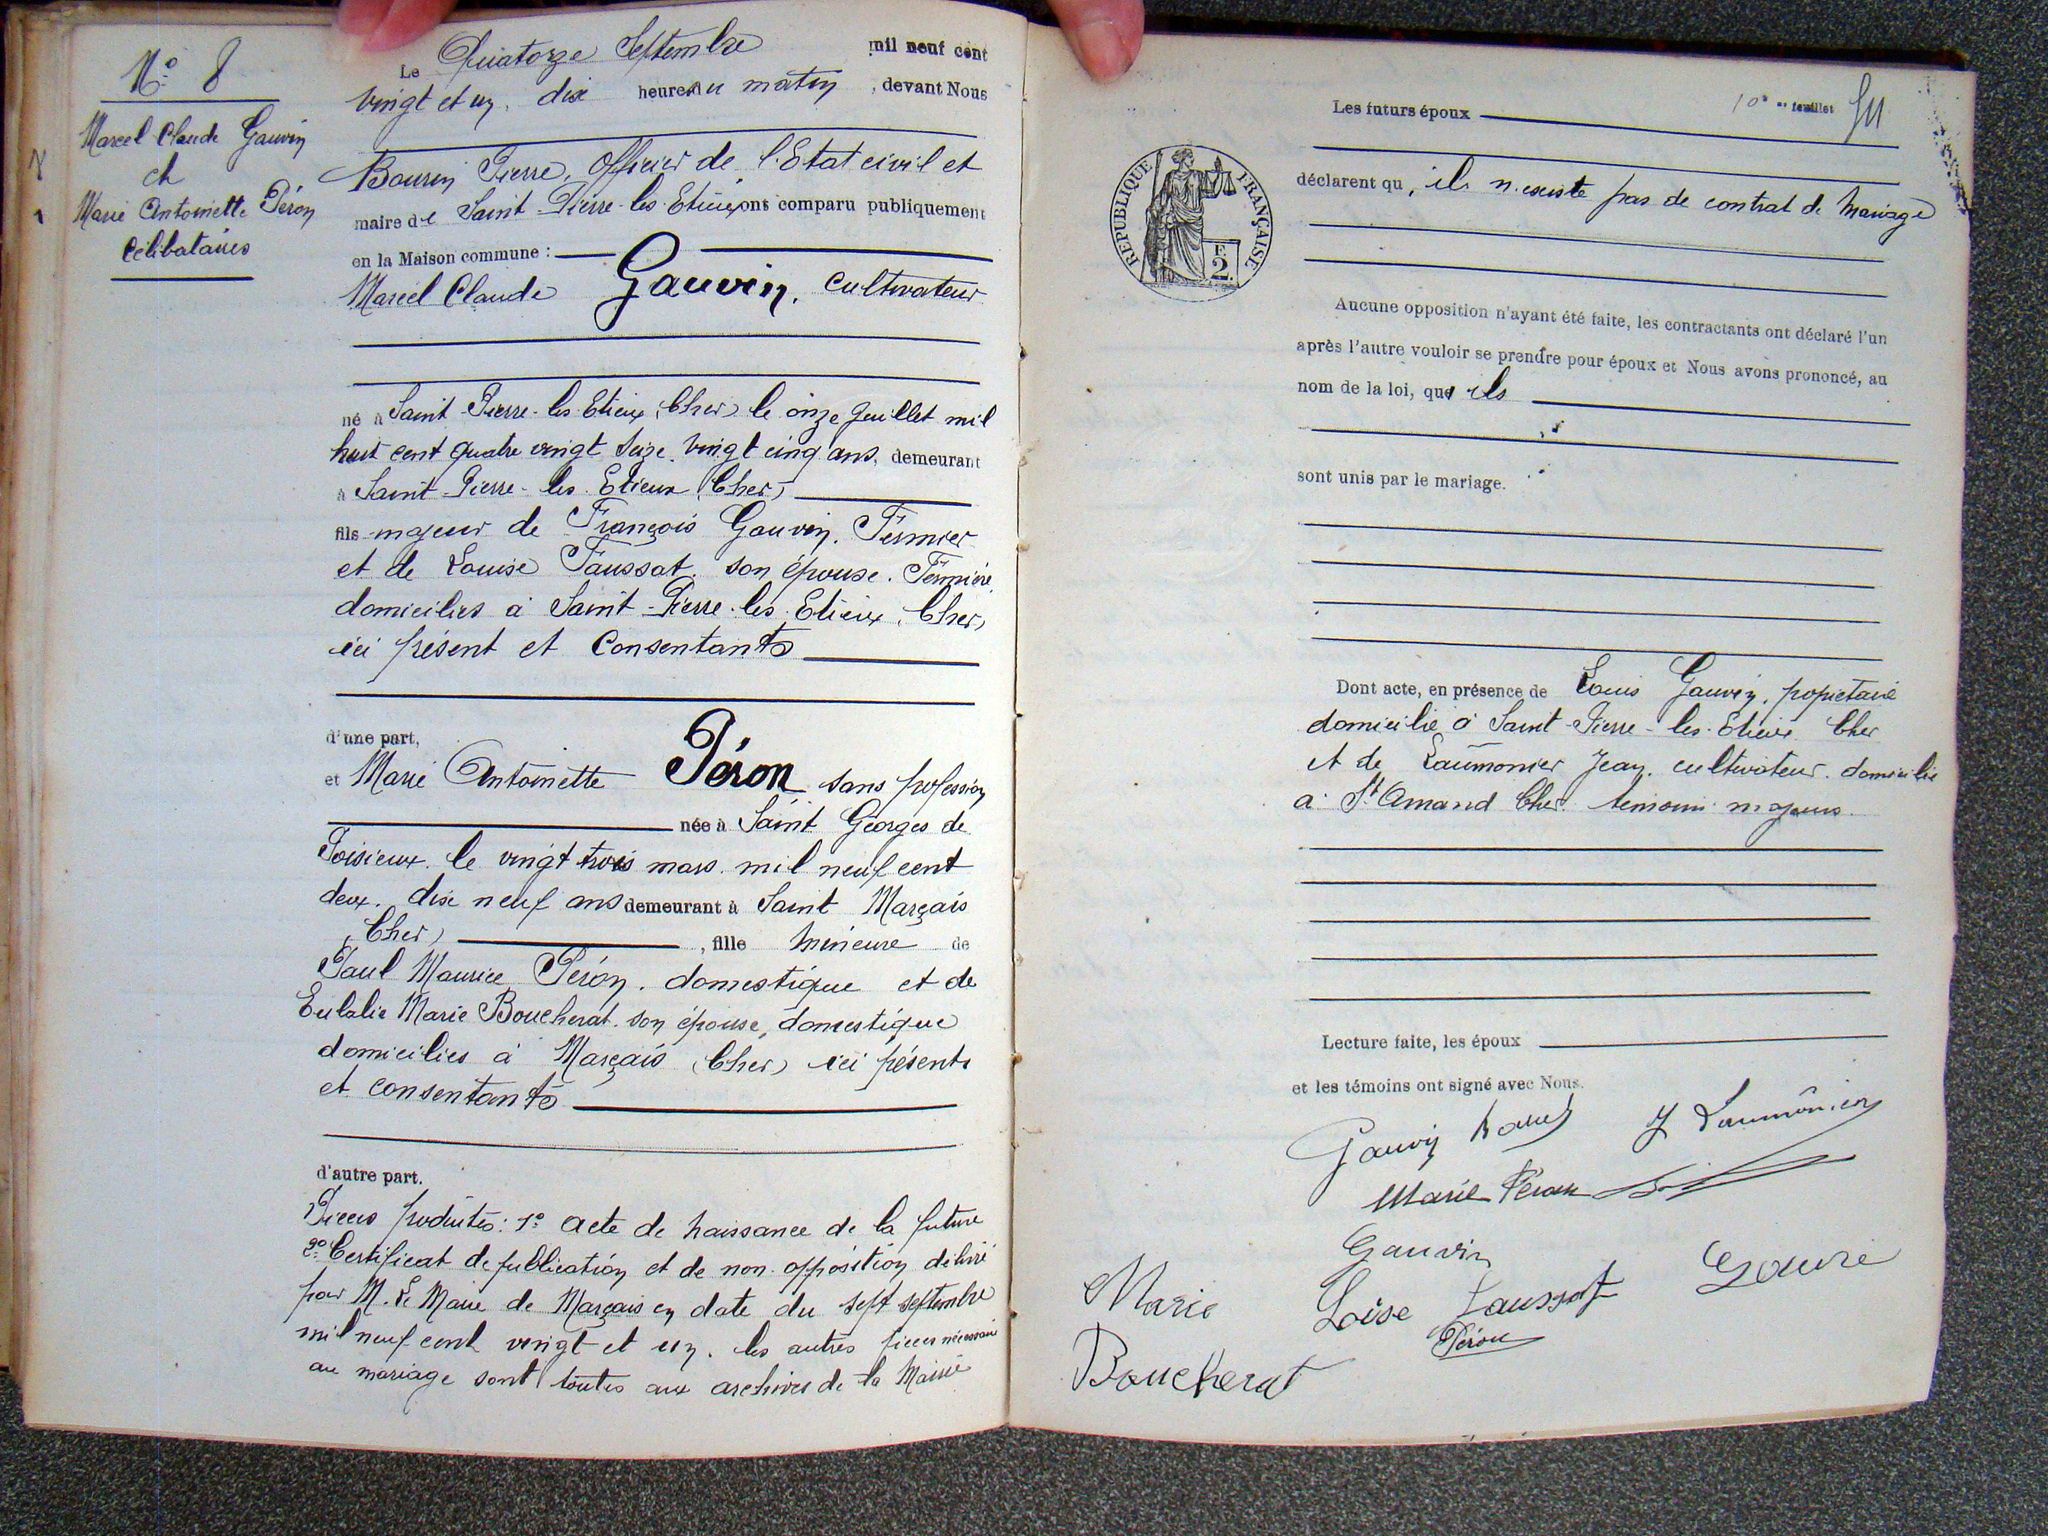 N° 8
Marcel Claude Gauvin
et
Marie Antoinette Péron
Célibataires
Le Quatorze Septembre mil neuf cent
vingt et un, dix heures du matin, devant Nous
Bourin Pierre, Officier de l'Etat civil et
maire de Saint-Pierre-les-Etieux ont comparu publiquement
en la Maison commune :
Marcel Claude Gauvin, Cultivateur
né à Saint-Pierre-les-Etieux (Cher) le onze Juillet mil
huit cent quatre vingt seize, vingt cinq ans, demeurant
à Saint-Pierre-les-Etieux (Cher)
fils majeur de François Gauvin, Fermier
et de Louise Faussat, son épouse, Fermière
domiciliés à Saint-Pierre-les-Etieux (Cher)
ici présent et Consentants
d'une part,
et Marie Antoinette Péron sans profession
née à Saint Georges de
Poisieux, le vingt trois mars mil neuf cent
deux, dix neuf ans demeurant à Saint Marçais
(Cher), fille mineure de
Paul Maurice Péron, domestique et de
Eulalie Marie Boucherat son épouse, domestique
domiciliés à Marçais (Cher) ici présents
et consentants
d'autre part.
Pièces produites : 1° acte de naissance de la future
2° Certificat de publication et de non opposition délivré
par M. Le Maire de Marçais en date du sept septembre
mil neuf cent vingt et un, les autres pièces nécessaires
au mariage sont toutes aux archives de la Mairie
10 me feuillet
RÉPUBLIQUE FRANÇAISE
F. 2.
Les futurs époux
déclarent qu'il n'existe pas de contrat de mariage
Aucune opposition n'ayant été faite, les contractants ont déclaré l'un
après l'autre vouloir se prendre pour époux et Nous avons prononcé, au
nom de la loi, qu'ils
sont unis par le mariage.
Dont acte, en présence de Louis Gauvin, propietaire
domicilié à Saint-Pierre-les-Etieux Cher
et de Laumônier Jean, cultivateur, domicilié
à St Amand Cher témoins majeurs
Lecture faite, les époux
et les témoins ont signé avec Nous.
Gauvin J Laumônier
Marie Péron
Gauvin
Marie Loise Faussat
Péron
Boucherat